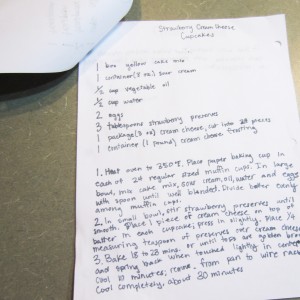 Strawberry Cream Cheese
Cupcakes
1 box yellow cake mix
1 container (8 oz) sour cream
1/2 cup vegetable oil
1/2 cup water
2 eggs
3 tablespoons strawberry preserves
1 package (3 oz) cream cheese, cut into 24 pieces
1 container (1 pound) cream cheese frosting
1. Heat oven to 350°F. Place paper baking cup in
each of 24 regular sized muffin cups. In large
bowl, mix cake mix, sour cream, oil, water and eggs
with spoon until well blended. Divide batter evenly
among muffin cups.
2. In small bowl, stir strawberry preserves until
smooth. Place 1 piece of cream cheese on top of
batter in each cupcake; press in slightly. Place 1/4
measuring teaspoon of preserves over cream cheese
3. Bake 18 to 23 mins. or until tops are golden brown
and spring back when touched lightly in center
Cool 10 minutes; remove from pan to wire rack
Cool completely, about 30 minutes